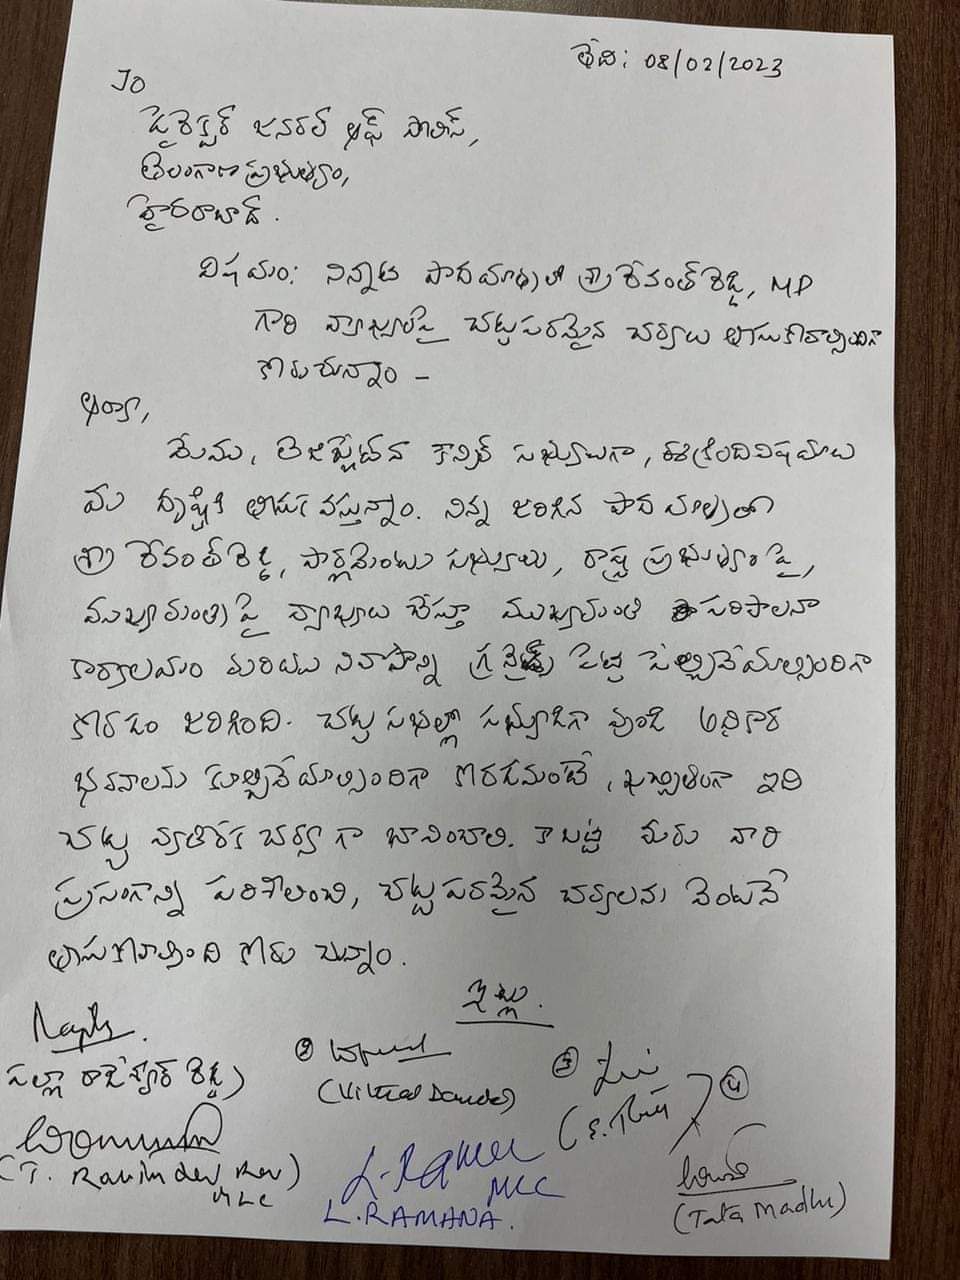 తేది: 08/02/2023
To
డైరెక్టర్ జనరల్ ఆఫ్ పోలీస్,
తెలంగాణ ప్రభుత్వం,
హైదరాబాద్.
విషయం: నిన్నటి పాదయాత్రలో శ్రీ రేవంత్ రెడ్డి, MP
గారి వ్యాఖ్యలపై చట్టపరమైన చర్యలు తీసుకోవాల్సిందిగా
కోరుచున్నాం -
ఆర్యా,
మేము, లెజిస్లేటివ్ కౌన్సిల్ సభ్యులుగా, ఈ క్రింది విషయాలు
మీ దృష్టికి తీసుకువస్తున్నాం. నిన్న జరిగిన పాదయాత్రలో
శ్రీ రేవంత్ రెడ్డి, పార్లమెంటు సభ్యులు, రాష్ట్ర ప్రభుత్వంపై,
ముఖ్యమంత్రిపై వ్యాఖ్యలు చేస్తూ ముఖ్యమంత్రి పరిపాలనా
కార్యాలయం మరియు నివాసాన్ని పెట్టి పేల్చివేయాల్సిందిగా
కోరడం జరిగింది. చట్ట సభల్లో సభ్యుడిగా వుండి అధికార
భవనాలను కూల్చివేయాల్సిందిగా కోరడమంటే, ఖచ్చితంగా ఇది
చట్ట వ్యతిరేక చర్యగా భావించాలి. కాబట్టి మీరు వారి
ప్రసంగాన్ని పరిశీలించి, చట్టపరమైన చర్యలను వెంటనే
తీసుకోవాల్సింది కోరుచున్నాం.
ఇట్లు.
పల్లా రాజేశ్వర్ రెడ్డి)
②
(Vittal Dande)
③
④
(T. Ravinder Rao)
MLC
L. Ramana
MLC
L. RAMANA.
(Tata Madhu)